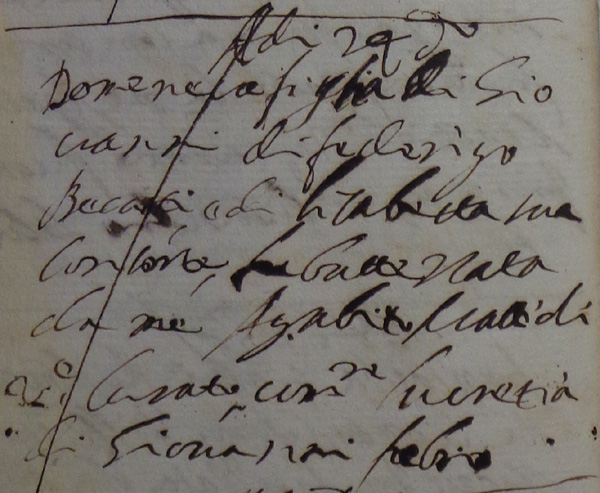 Adi 24 do
Domenica figlia di Gio
vanni di federigo
e di lisabetta sua
Consorte, fu battezzata
da me Agabito
Curato, comre lucretia
di Giovanni fabro